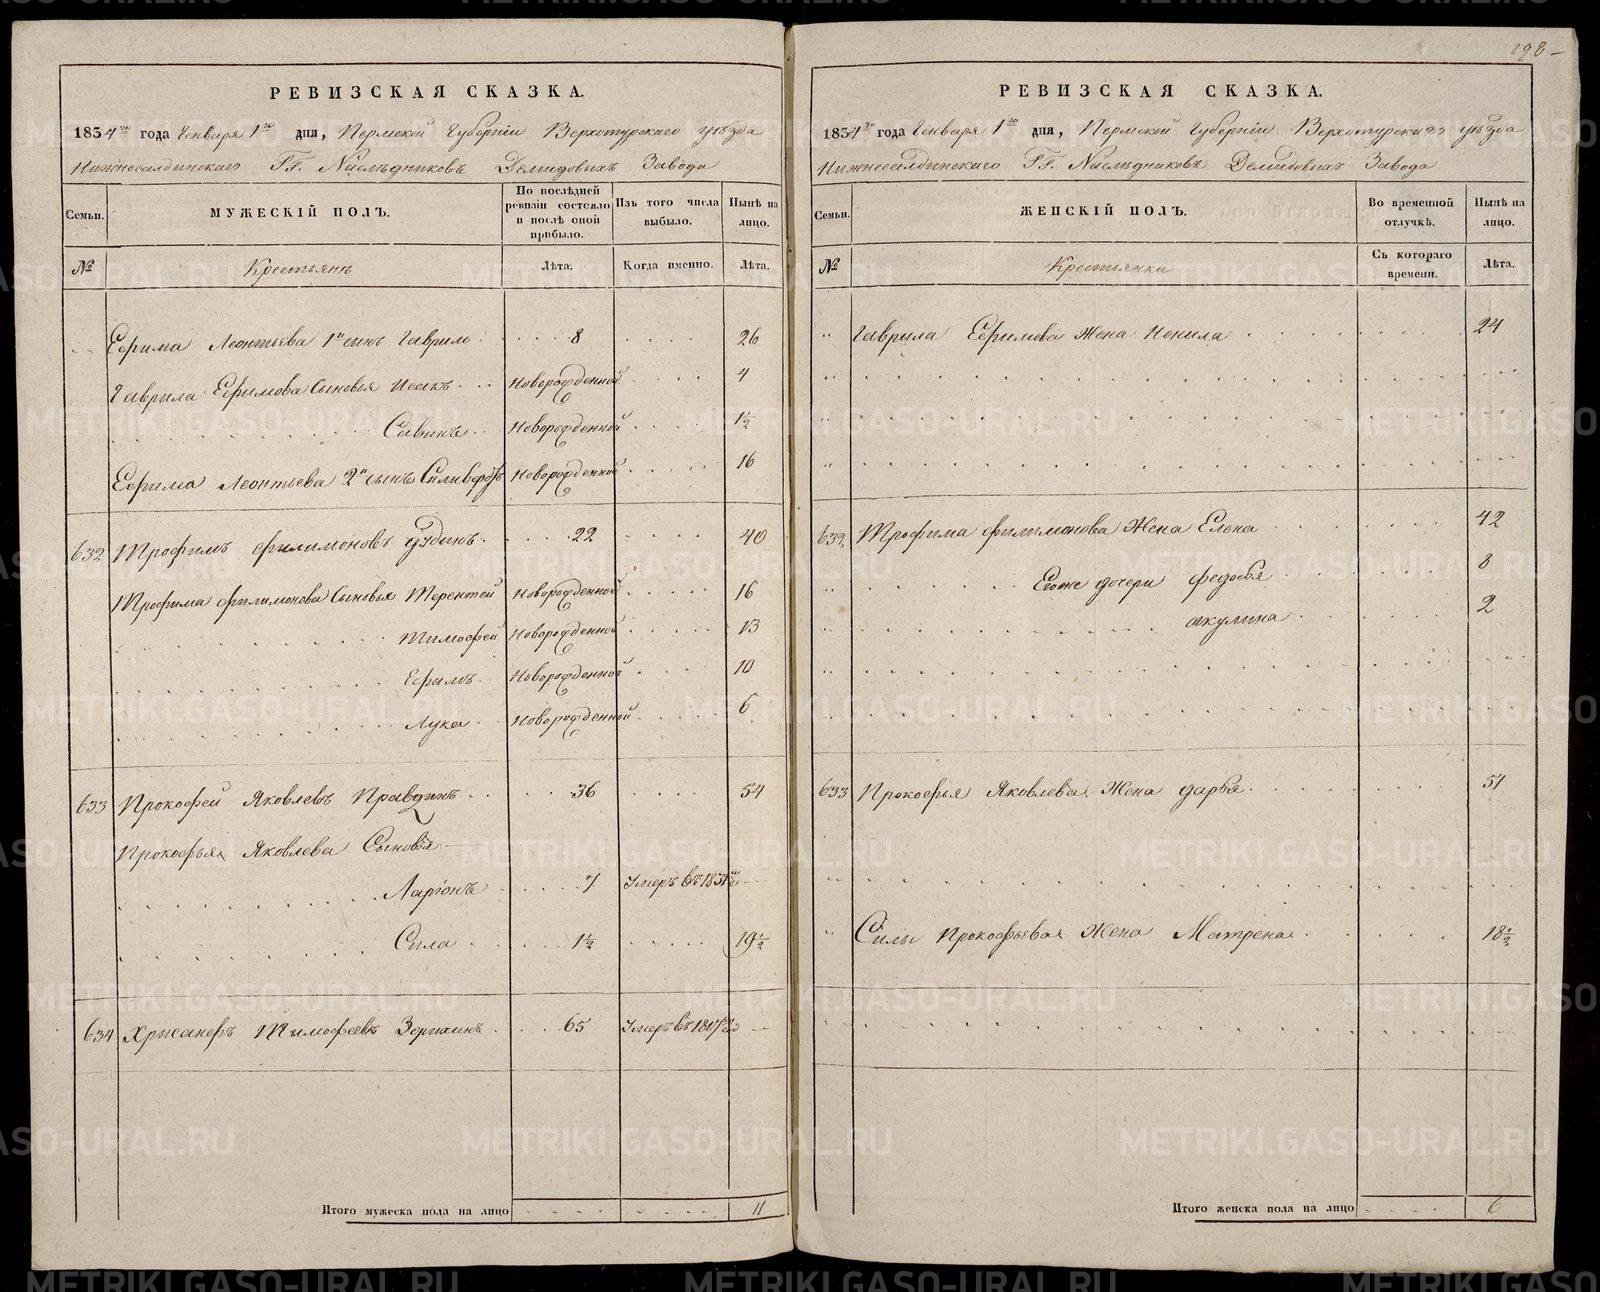 298
РЕВИЗСКАЯ СКАЗКА.
1834го года Генваря 1го дня, Пермской Губерніи Верхотурскаго уѣзда
Нижнесалдинскаго ГГ. Наслѣдниковъ Демидовыхъ Завода
Семьи. МУЖЕСКІЙ ПОЛЪ. По послѣдней ревизіи состояло и послѣ оной прибыло. Изъ того числа выбыло. Нынѣ на лицо.
№ Крестьянъ Лѣта. Когда именно. Лѣта.
Ефима Леонтьева 1й сынъ Гаврило 8 26
Гаврила Ефимова Сыновья Исакъ Новорожденной 4
Савинъ Новорожденной 1½
Ефима Леонтьева 2й сынъ Новорожденной 16
632 Трофимъ Филимоновъ Новорожденной 22 40
Трофима Филимонова Сыновья Терентей Новорожденной 16
Тимофей Новорожденной 13
Ефимъ Новорожденной 10
Лука Новорожденной 6
633 Прокофей Яковлевъ Правдинъ 36 54
Прокофья Яковлева Сыновья
Ларіонъ 7 Умеръ въ 1831м
Сила 1½ 19½
634 Хрисанфъ Тимофеевъ Зорихинъ 65 Умеръ въ 1817
Итого мужеска пола на лицо 11
РЕВИЗСКАЯ СКАЗКА.
1834го года Генваря 1го дня, Пермской Губерніи Верхотурскаго уѣзда
Нижнесалдинскаго ГГ. Наслѣдниковъ Демидовыхъ Завода
Семьи. ЖЕНСКІЙ ПОЛЪ. Во временной отлучкѣ. Нынѣ на лицо.
№ Крестьянки Съ котораго времени. Лѣта.
Гаврила Ефимова Жена Ненила 24
632 Трофима Филимонова Жена Елена 42
Егоже дочери Федосья 8
акулина 2
633 Прокофья Яковлева Жена дарья 51
Силы Прокофьева Жена Матрена 18½
Итого женска пола на лицо 6
METRIKI.GASO-URAL.RU